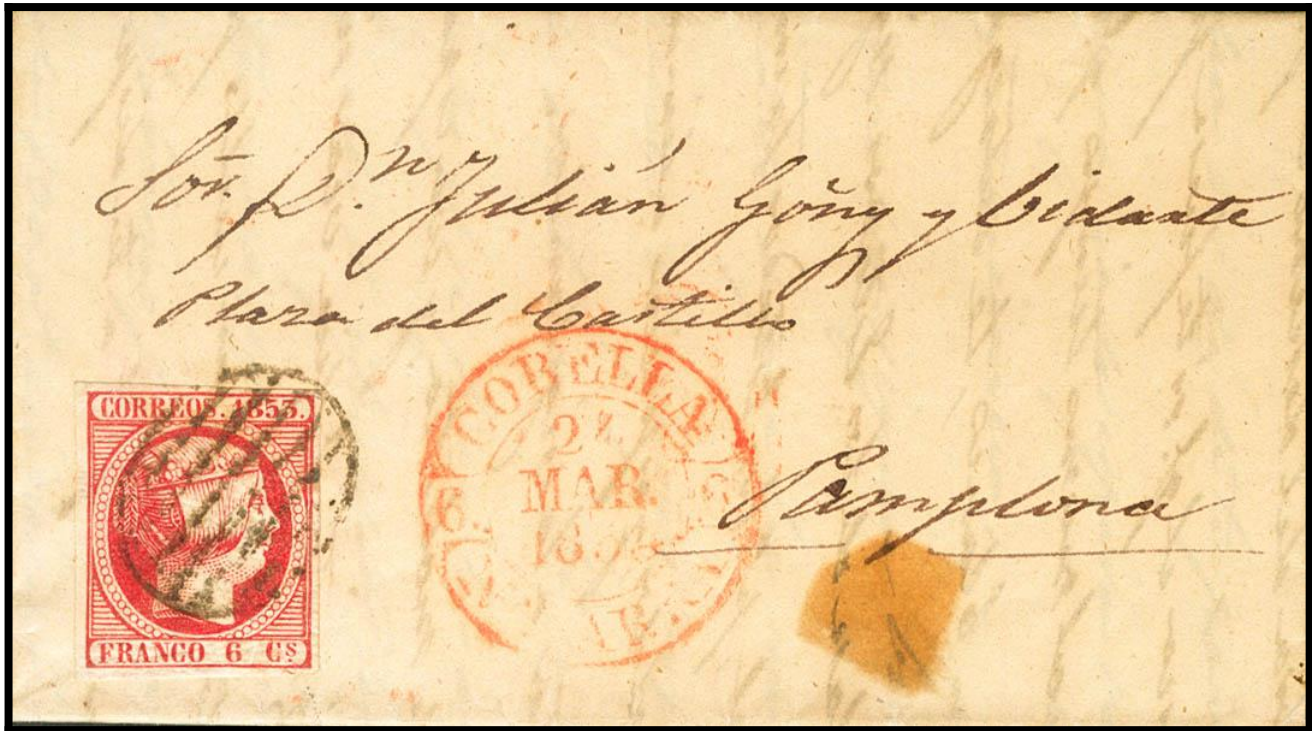 Sor. Dn. Julián Goñy y Vidarte
Plaza del Castillo
Pamplona
CORREOS. 1853.
FRANCO 6 CS
CORELLA
MAR.
6